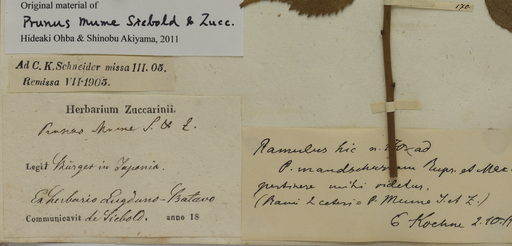 Original material of
Prunus Mume Siebold & Zucc.
Hideaki Ohba & Shinobu Akiyama, 2011
Ad C. K. Schneider missa III. 05.
Remissa VII. 1905.
Herbarium Zuccarinii.
Prunus Mume S. & Z.
Legit Bürger in Japonia.
Ex herbario Lugduno-Batavo
Communicavit de Siebold. anno 18
170.
Ramulus hic n. ad
P. mandschuricam Rupr. et
pertinere mihi videtur.
(Rami 2 ceteri = P. Mume S. et Z.)
E Koehne 2.10.